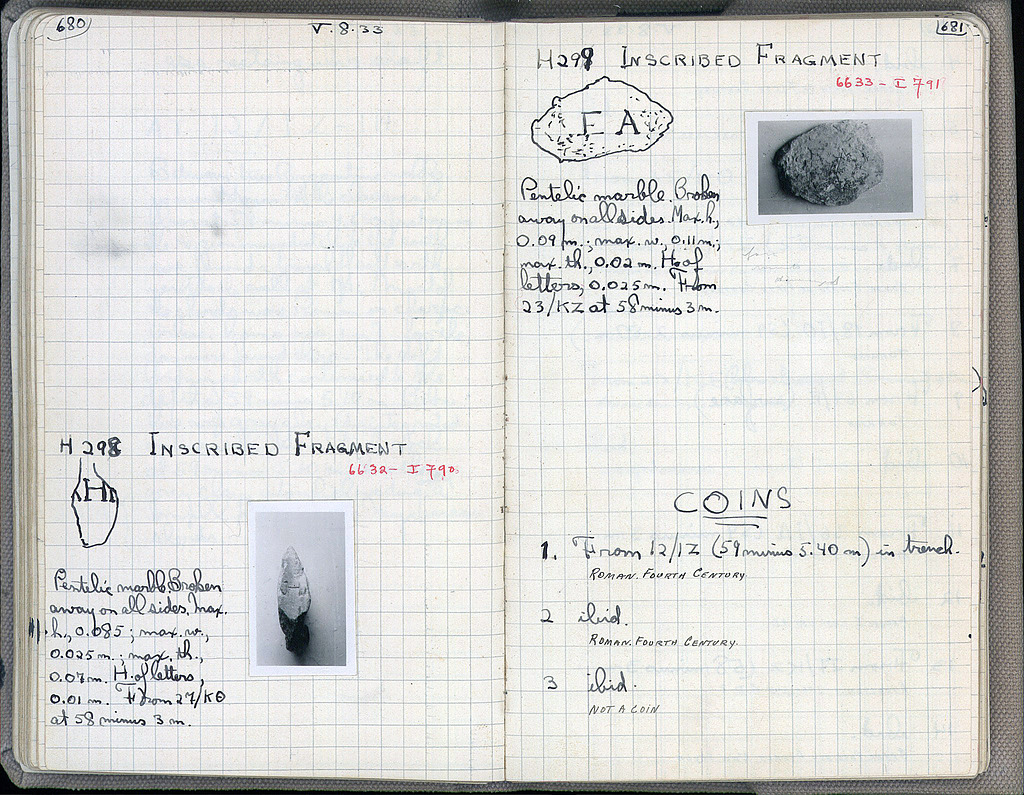 680
V. 8. 33
H 298 INSCRIBED FRAGMENT
6632 - I 790
H
Pentelic marble. Broken
away on all sides. Max.
h., 0.085; max. w.,
0.025 m.; max. th.,
0.07 m. H. of letters,
0.01 m. From 27/ΚΘ
at 58 minus 3 m.
681
H 299 INSCRIBED FRAGMENT
6633 - I 791
E A
Pentelic marble. Broken
away on all sides. Max. h.,
0.09 m.; max. w., 0.11 m.;
max. th., 0.02 m. H. of
letters, 0.025 m. From
23/ΚΖ at 58 minus 3 m.
COINS
1. From 12/ΙΖ (59 minus 5.40 m) in trench.
ROMAN. FOURTH CENTURY
2 ibid.
ROMAN. FOURTH CENTURY.
3 ibid.
NOT A COIN